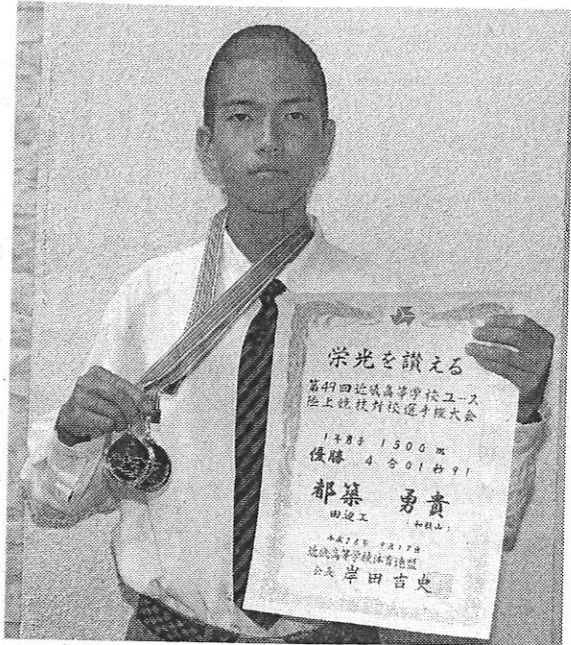 栄光を讃える
第49回近畿高等学校ユース
陸上競技対校選手権大会
1年男子 1500m
優勝 4分01秒91
都築 勇貴
田辺工 (和歌山)
近畿高等学校体育連盟
会長 岸田吉史